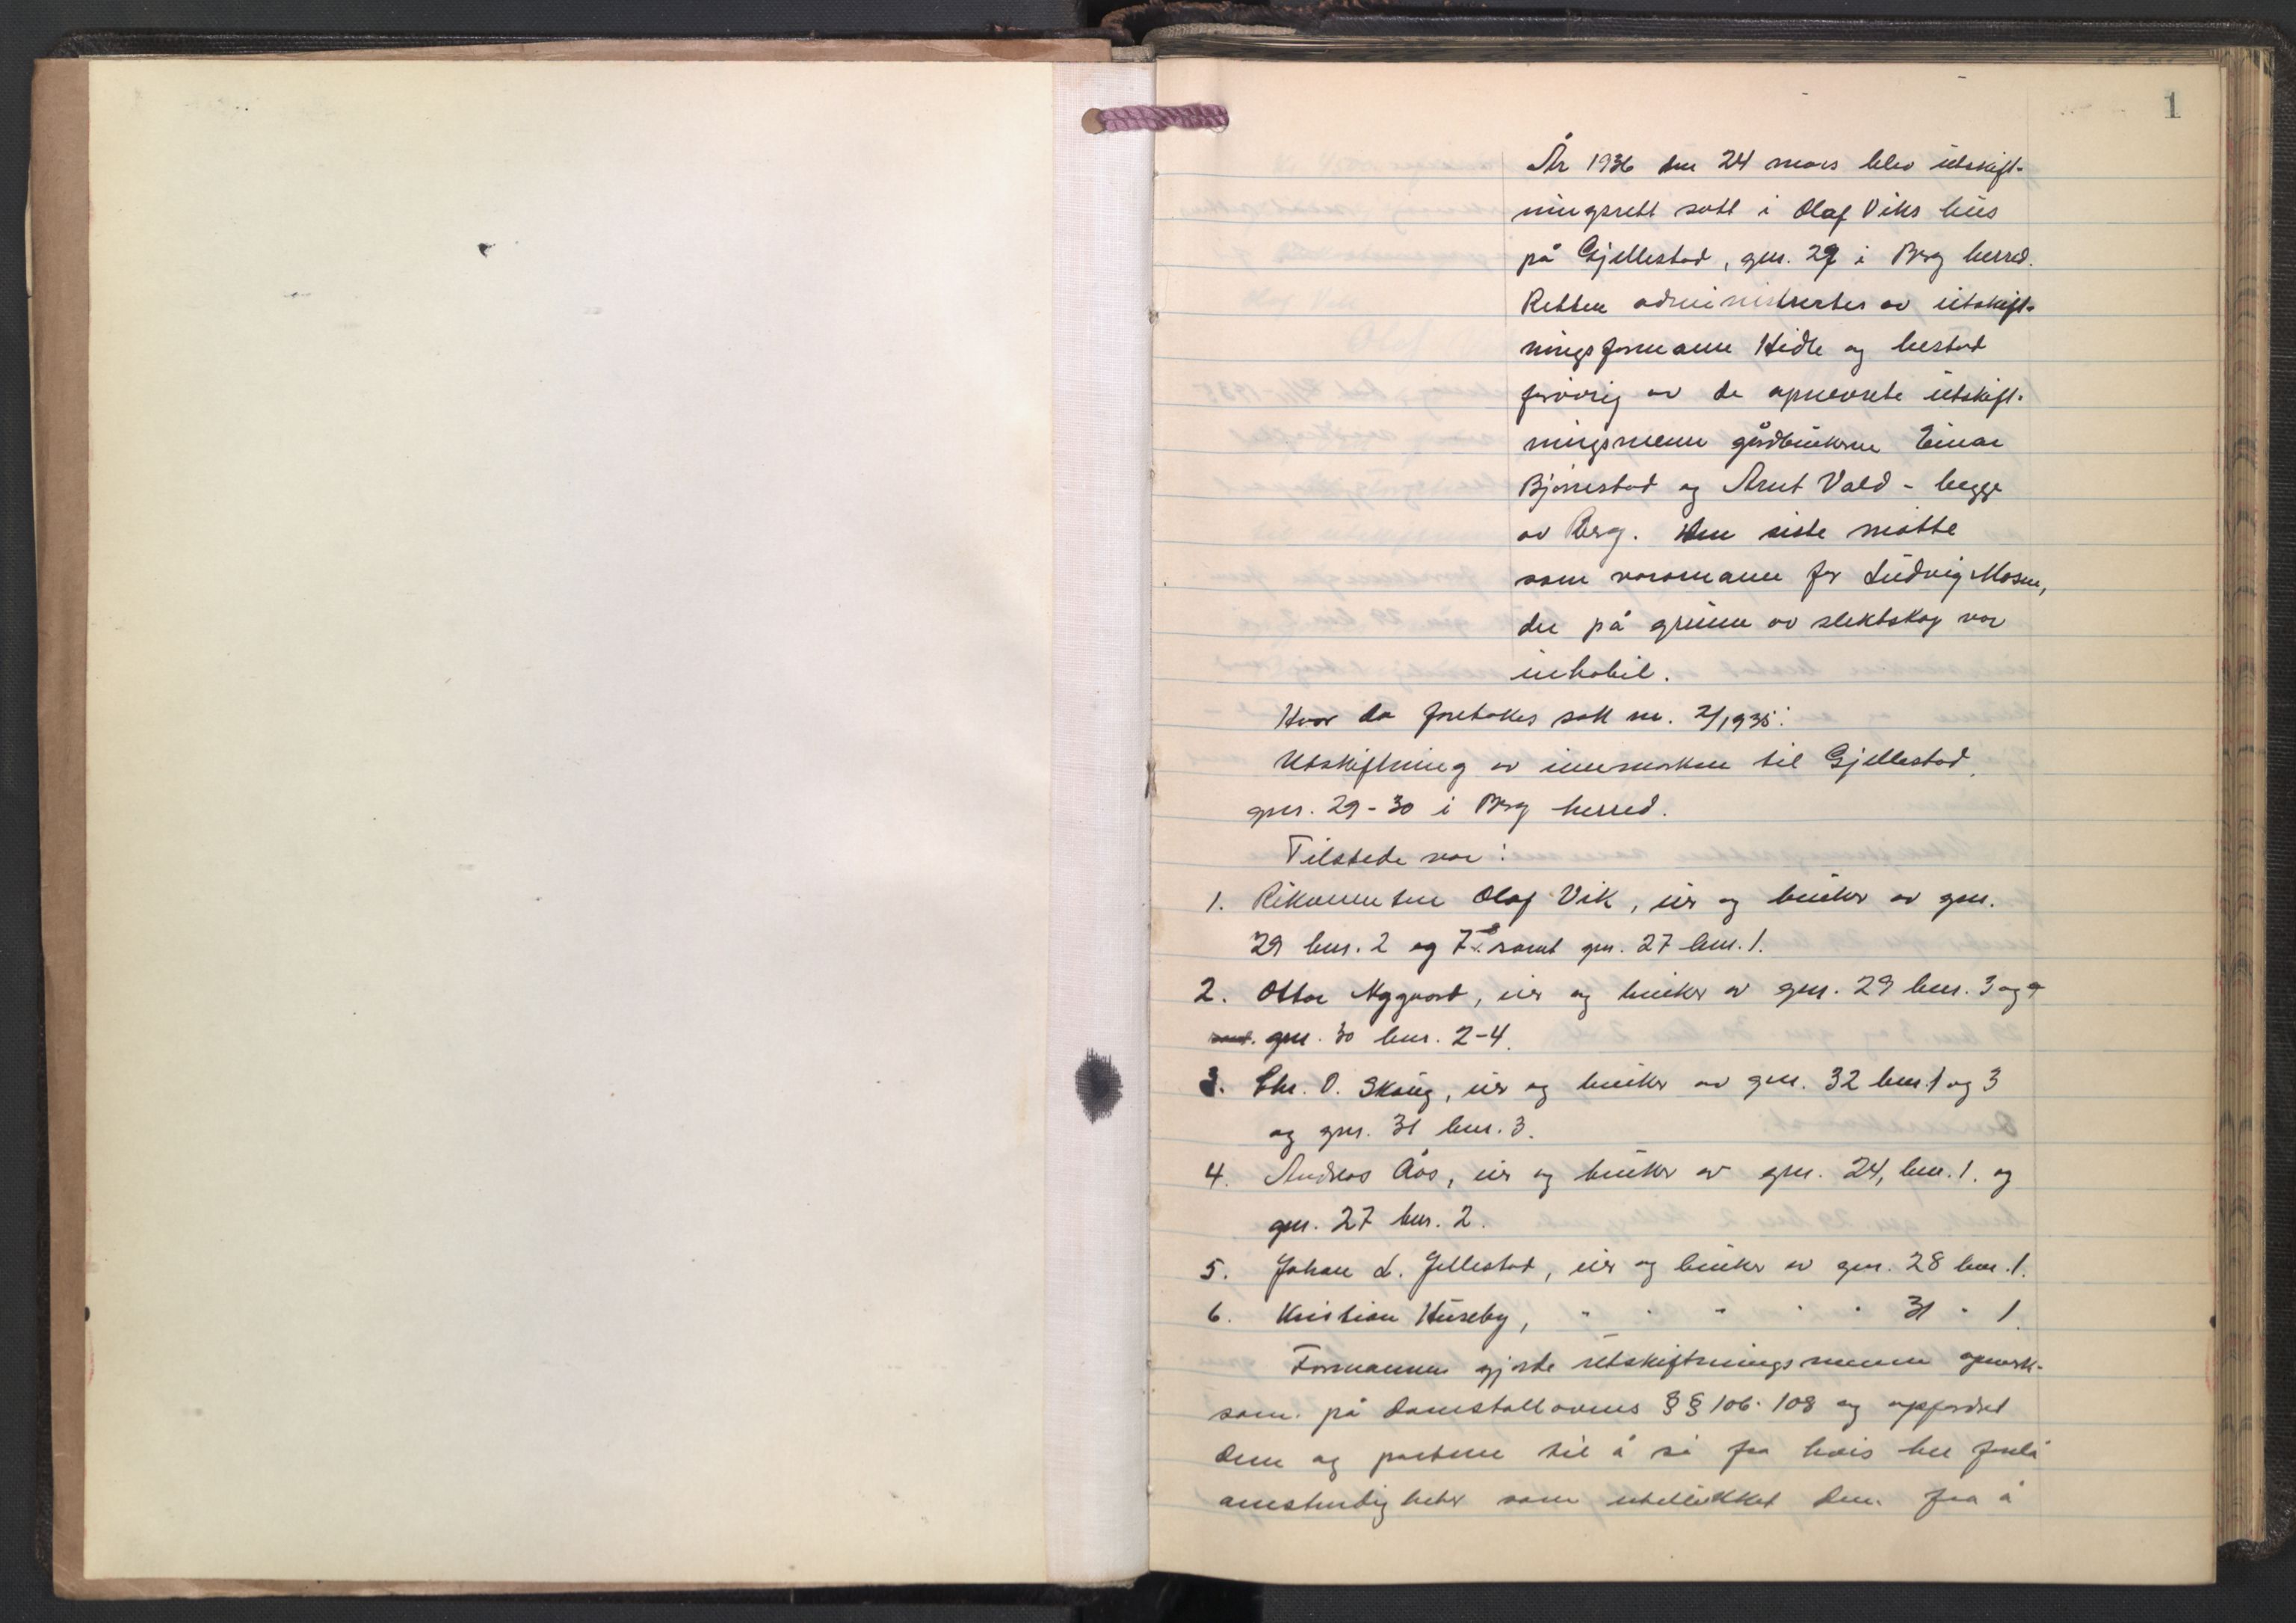 1
År 1936 den 24 mars blev utskift-
ningsrett satt i Olaf Viks hus
på Gjellestad, gnr. 29 i Berg herred.
Retten administrertes av utskift-
ningsformann Hidle og bestod
forøvrig av de opnevnte utskift-
ningsmenn gårdbrukerne Einar
Bjørnestad og Arnt Vold - begge
av Berg. Den siste møtte
som varamann for Ludvig Mosen,
der på grunn av slektskap var
inhabil.
Hvor da foretokes sak nr. 2/1935:
Utskiftning av innmarken til Gjellestad,
gnr. 29-30 i Berg herred.
Tilstede var:
1. Rekvirenten Olaf Vik, eier og bruker av gnr.
29 bnr. 2 og 7 samt gnr. 27 bnr. 1.
2. Ottar Nygaard, eier og bruker av gnr. 29 bnr. 3 og 9
samt. gnr. 30 bnr. 2-4.
3. Chr. O. Skaug, eier og bruker av gnr. 32 bnr. 1 og 3
og gnr. 31 bnr. 3.
4. Andreas Aås, eier og bruker av gnr. 24, bnr. 1. og
gnr. 27 bnr. 2.
5. Johan L. Jellestad, eier og bruker av gnr. 28 bnr. 1.
6. Kristian Huseby, " " " " " 31 " 1.
Formannen gjorde utskiftningsmenn opmerk-
som på domstollovens §§ 106-108 og opfordret
dem og partene til å si fra hvis der forelå
omstendigheter som utelukket dem fra å